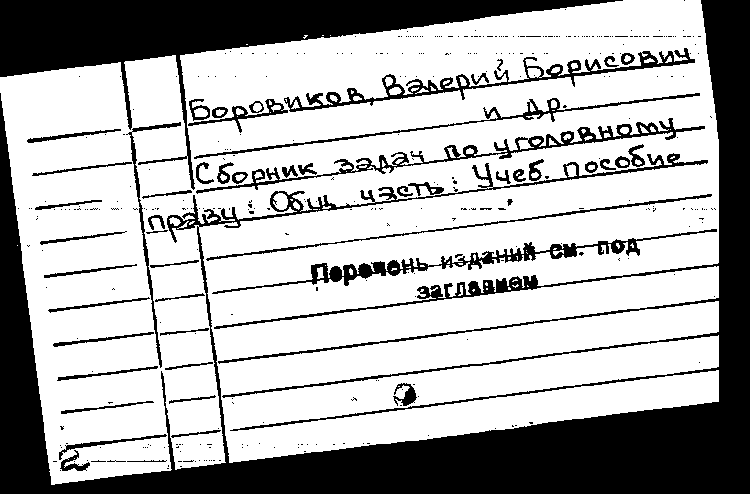 Боровиков, Валерий Борисович
и др.
Сборник задач по уголовному
праву: Общ. часть: Учеб. пособие
Перечень изданий см. под
заглавием
2